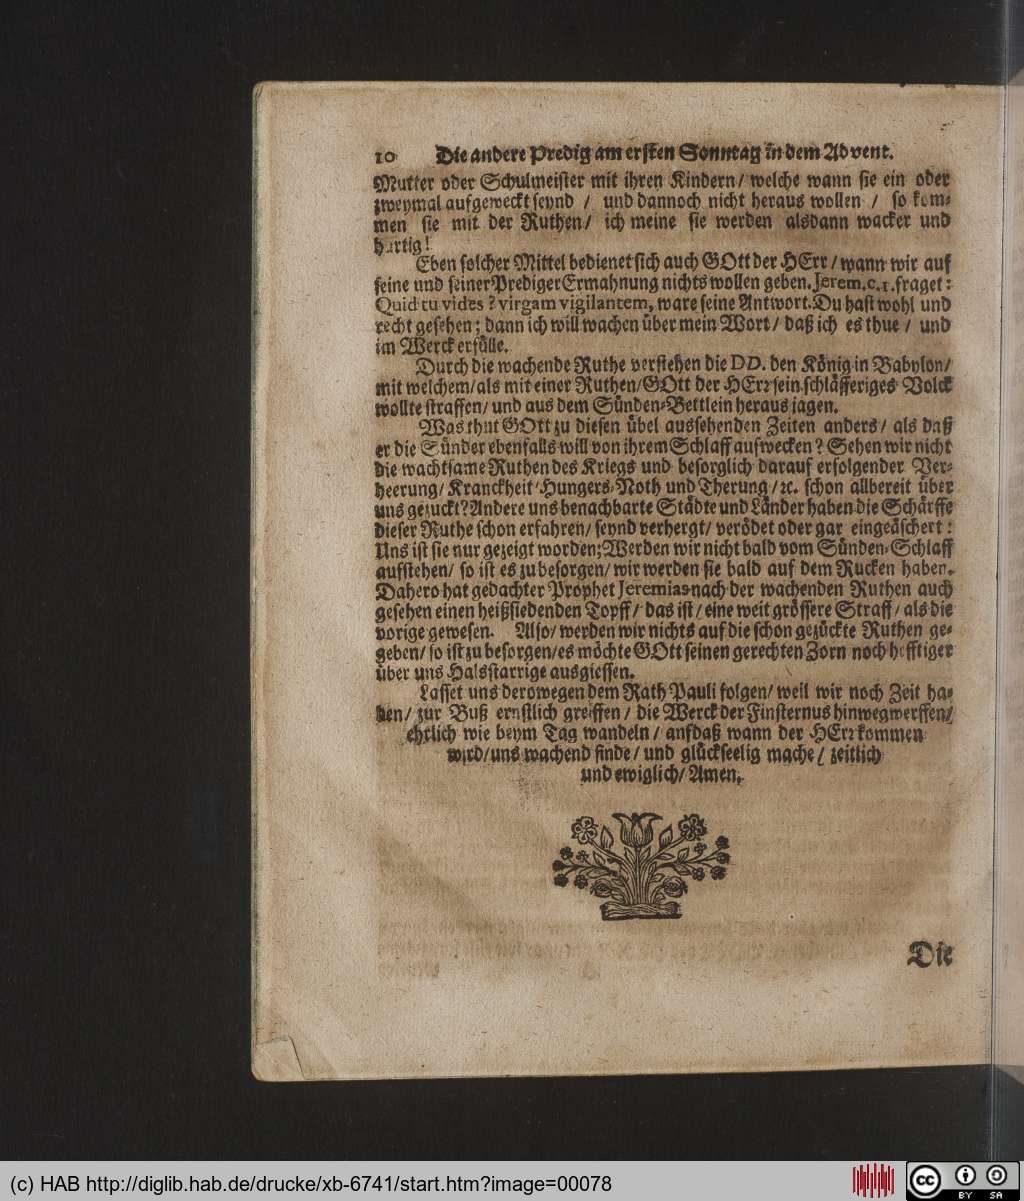 10 Die andere Predig am ersten Sonntag in dem Advent.
Mutter oder Schulmeister mit ihren Kindern/ welche wann sie ein oder
zweymal aufgeweckt seynd / und dannoch nicht heraus wollen / so kom-
men sie mit der Ruthen/ ich meine sie werden alsdann wacker und
hurtig!
Eben solcher Mittel bedienet sich auch GOtt der HErr/ wann wir auf
seine und seiner Prediger Ermahnung nichts wollen geben. Jerem. c. 1. fraget:
Quid tu vides? virgam vigilantem, ware seine Antwort. Du hast wohl und
recht gesehen; dann ich will wachen über mein Wort/ daß ich es thue / und
im Werck erfülle.
Durch die wachende Ruthe verstehen die DD. den König in Babylon/
mit welchem/ als mit einer Ruthen/ GOtt der HErr sein schläfferiges Volck
wollte straffen/ und aus dem Sünden-Bettlein heraus jagen.
Was thut GOtt zu diesen übel aussehenden Zeiten anders/ als daß
er die Sünder ebenfalls will von ihrem Schlaff aufwecken? Sehen wir nicht
die wachtsame Ruthen des Kriegs und besorglich darauf erfolgender Ver-
heerung/ Kranckheit/ Hungers-Noth und Therung/ ꝛc. schon allbereit über
uns gezuckt? Andere uns benachbarte Städte und Länder haben die Schärffe
dieser Ruthe schon erfahren/ seynd verhergt/ verödet oder gar eingeäschert:
Uns ist sie nur gezeigt worden; Werden wir nicht bald vom Sünden-Schlaff
aufstehen/ so ist es zu besorgen/ wir werden sie bald auf dem Rucken haben.
Dahero hat gedachter Prophet Jeremias nach der wachenden Ruthen auch
gesehen einen heißsiedenden Topff/ das ist/ eine weit grössere Straff/ als die
vorige gewesen. Also/ werden wir nichts auf die schon gezückte Ruthen ge-
geben/ so ist zu besorgen/ es möchte GOtt seinen gerechten Zorn noch hefftiger
über uns Halsstarrige ausgiessen.
Lasset uns derowegen dem Rath Pauli folgen/ weil wir noch Zeit ha-
ben/ zur Buß ernstlich greiffen / die Werck der Finsternus hinwegwerffen/
ehrlich wie beym Tag wandeln / aufdaß wann der HErr kommen
wird/ uns wachend finde/ und glückseelig mache/ zeitlich
und ewiglich/ Amen.
Die
(c) HAB http://diglib.hab.de/drucke/xb-6741/start.htm?image=00078
cc BY SA